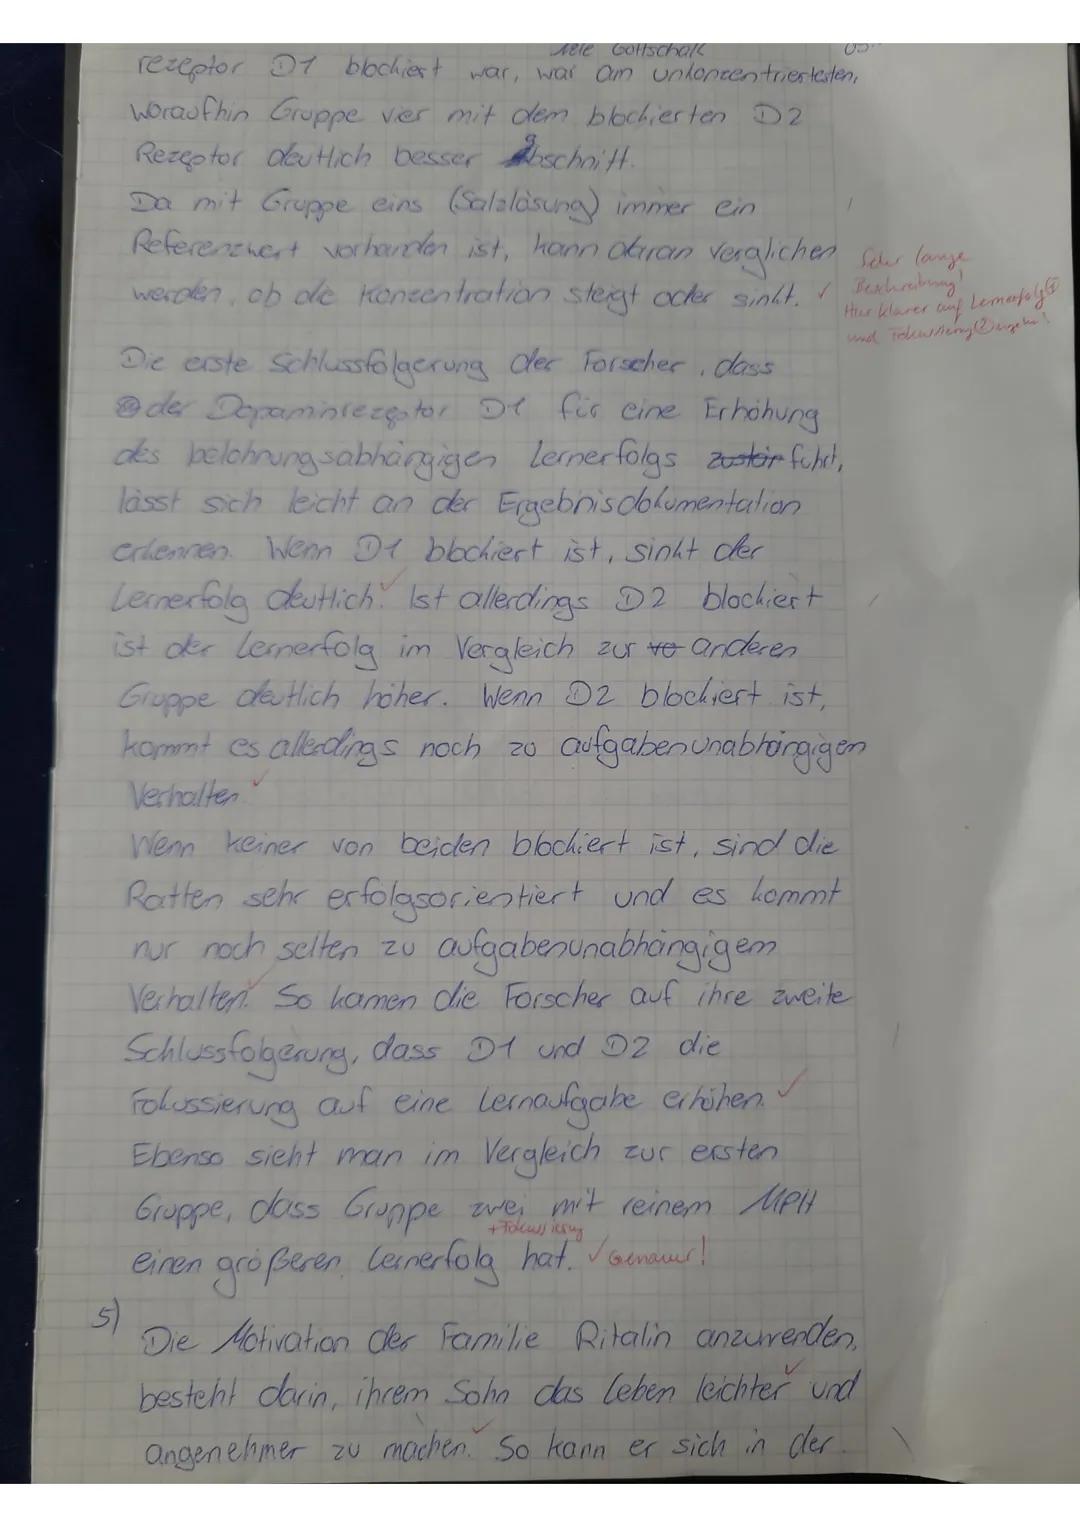 Gottschalk
rezeptor D1 blockiert war, war am unkonzentriertesten,
woraufhin Gruppe vier mit dem blockierten D2
Rezeptor deutlich besser abschnitt.
Da mit Gruppe eins (Salzlösung) immer ein
Referenzwert vorhanden ist, kann daran verglichen
werden, ob die Konzentration steigt oder sinkt. ✓
Sehr lange
Beschreibung!
Hier klarer auf Lernerfolg ①
und Fokussierung ② eingehen!
Die erste Schlussfolgerung der Forscher, dass
der Dopaminrezeptor D1 für eine Erhöhung
des belohnungsabhängigen Lernerfolgs führt,
lässt sich leicht an der Ergebnisdokumentation
erkennen. Wenn D1 blockiert ist, sinkt der
Lernerfolg deutlich. ✓ Ist allerdings D2 blockiert
ist der Lernerfolg im Vergleich zur anderen
Gruppe deutlich höher. Wenn D2 blockiert ist,
kommt es allerdings noch zu aufgabenunabhängigen
Verhalten ✓
Wenn keiner von beiden blockiert ist, sind die
Ratten sehr erfolgsorientiert und es kommt
nur noch selten zu aufgabenunabhängigem
Verhalten. ✓ So kamen die Forscher auf ihre zweite
Schlussfolgerung, dass D1 und D2 die
Fokussierung auf eine Lernaufgabe erhöhen. ✓
Ebenso sieht man im Vergleich zur ersten
Gruppe, dass Gruppe zwei mit reinem MPH
+ Fokussierung
einen größeren Lernerfolg hat. ✓ Genauer!
5)
Die Motivation der Familie Ritalin anzuwenden,
besteht darin, ihrem Sohn das Leben leichter ✓ und
angenehmer zu machen. ✓ So kann er sich in der